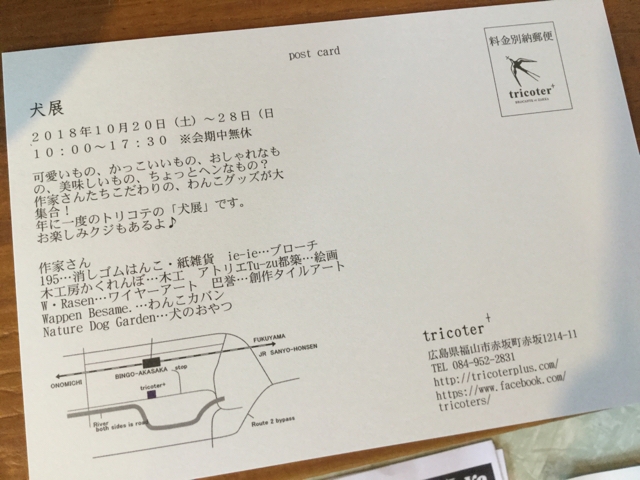 post card
料金別納郵便
tricoter+
犬展
2018年10月20日（土）～28日（日
10：00～17：30　※会期中無休
可愛いもの、かっこいいもの、おしゃれなも
の、美味しいもの、ちょっとヘンなもの？
作家さんたちこだわりの、わんこグッズが大
集合！
年に一度のトリコテの「犬展」です。
お楽しみクジもあるよ♪
作家さん
195…消しゴムはんこ・紙雑貨　ie-ie…ブローチ
木工房かくれんぼ…木工　アトリエTu-zu都築…絵画
W・Rasen…ワイヤーアート　巴誉…創作タイルアート
Wappen Besame.…わんこカバン
Nature Dog Garden…犬のおやつ
FUKUYAMA
JR SANYO-HONSEN
ONOMICHI
BINGO-AKASAKA
stop
tricoter+
River
both sides is road
Route 2 bypass
tricoter+
広島県福山市赤坂町赤坂1214-11
TEL 084-952-2831
http://tricoterplus.com/
https://www.facebook.com/
tricoters/